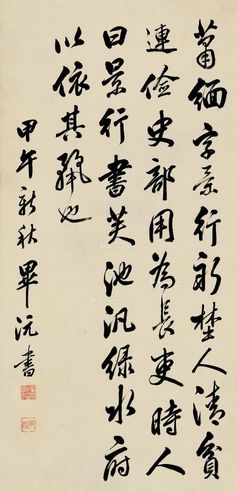 蕭緬字景行新埜人清貧
連儉史部用為長吏時人
曰景行書芙池汎綠水府
以依其也
甲午新秋畢沅書